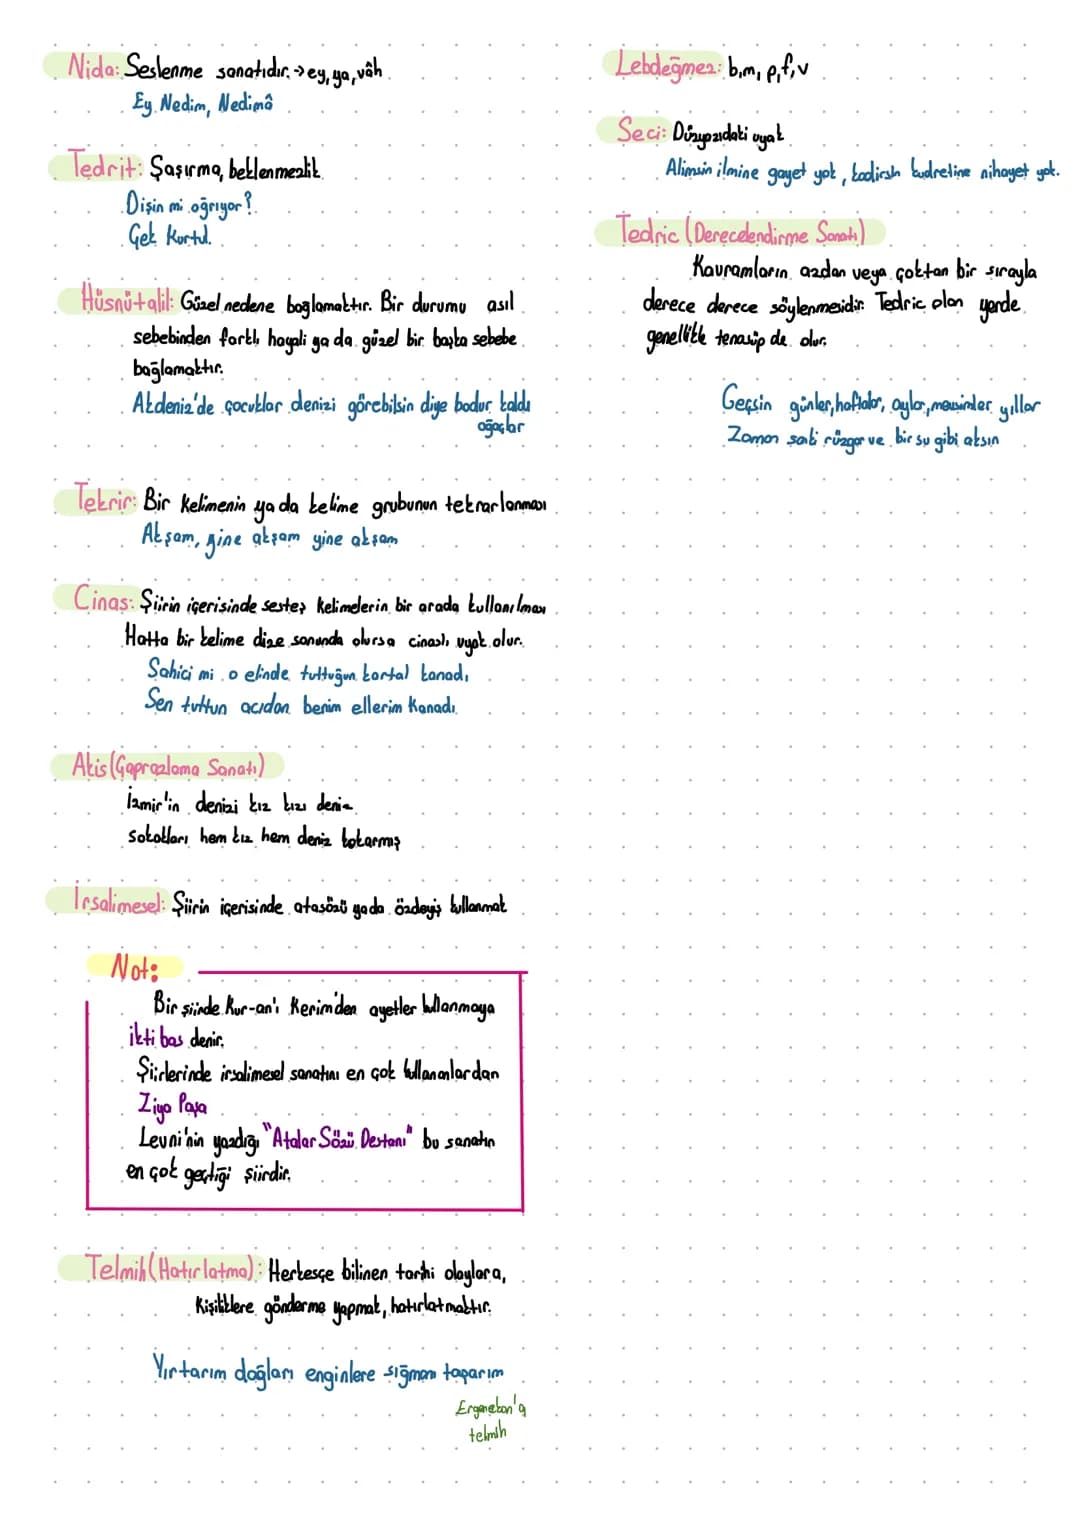 Nida: Seslenme sanatıdır. → ey, ya, vâh
Ey Nedim, Nedimâ
Tedrit: Şaşırma, beklenmezlik
Dişin mi ağrıyor?
Çek Kurtul.
Hüsnü talil: Güzel nedene bağlamaktır. Bir durumu asıl
sebebinden farklı, hayali ya da güzel bir başka sebebe
bağlamaktır.
Akdeniz'de çocuklar denizi görebilsin diye bodur kaldı
ağaçlar
Tekrir: Bir kelimenin ya da kelime grubunun tekrarlanması
Akşam, yine akşam yine akşam
Cinas: Şiirin içerisinde sesteş kelimelerin bir arada kullanılması
Hatta bir kelime dize sonunda olursa cinaslı uyak olur.
Sahici mi o elinde tuttuğun kartal kanadı,
Sen tuttun acıdan benim ellerim kanadı.
Akis (Çaprazlama Sanatı)
İzmir'in denizi kız kızı deniz
sokakları hem kız hem deniz kokarmış
İrsalimesel: Şiirin içerisinde atasözü ya da özdeyiş kullanmak
Not:
Bir şiirde Kur-an'ı Kerim'den ayetler kullanmaya
iktibas denir.
Şiirlerinde irsalimesel sanatını en çok kullananlardan
Ziya Paşa
Levni'nin yazdığı "Atalar Sözü Destanı" bu sanatın
en çok geçtiği şiirdir.
Telmih (Hatırlatma): Herkesçe bilinen tarihi olaylara,
kişiliklere gönderme yapmak, hatırlatmaktır.
Yırtarım dağları enginlere sığmam taşarım
Ergenekon'a
telmih
Lebdeğmez: b, m, p, f, v
Seci: Düzyazıdaki uyak
Alimsin ilmine gayet yok, kadirsin kudretine nihayet yok.
Tedric (Derecelendirme Sanatı)
Kavramların azdan veya çoktan bir sırayla
derece derece söylenmesidir. Tedric olan yerde
genellikle tenasüp de olur.
Geçsin günler, haftalar, aylar, mevsimler, yıllar
Zaman sanki rüzgar ve bir su gibi aksın